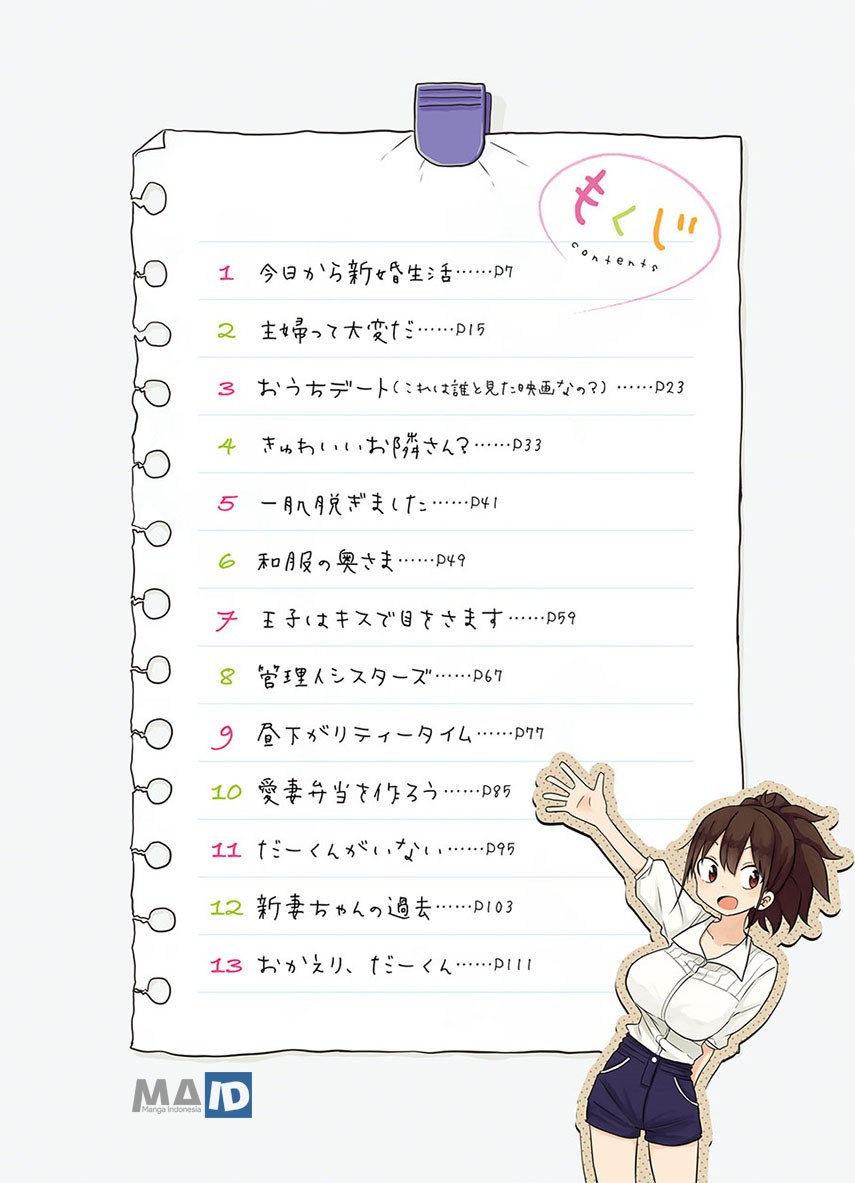 もくじ
contents
1 今日から新婚生活……P7
2 主婦って大変だ……P15
3 おうちデート(これは誰と見た映画なの?)……P23
4 きゅわいいお隣さん?……P33
5 一肌脱ぎました……P41
6 和服の奥さま……P49
7 王子はキスで目をさます……P59
8 管理人シスターズ……P67
9 昼下がりティータイム……P77
10 愛妻弁当を作ろう……P85
11 だーくんがいない……P95
12 新妻ちゃんの過去……P103
13 おかえり、だーくん……P111
MAID
Manga Indonesia